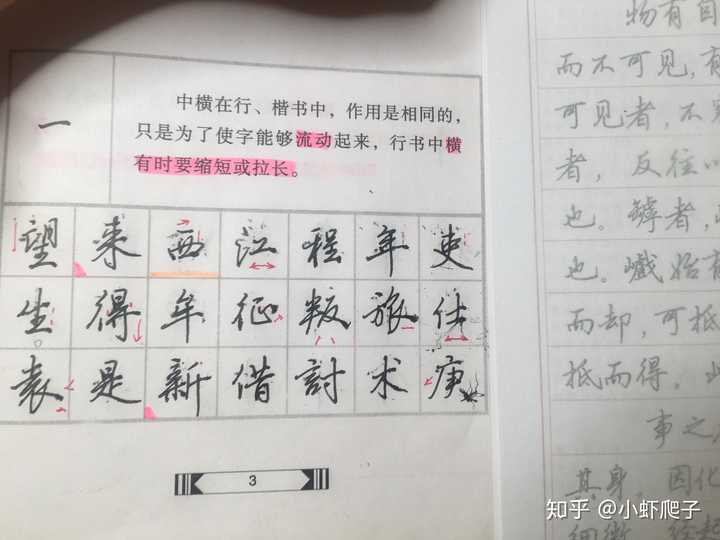 一
中横在行、楷书中，作用是相同的，
只是为了使字能够流动起来，行书中横
有时要缩短或拉长。
望 来 西 江 程 年 吏
生 得 年 征 叛 旅 仕
袁 是 新 借 討 术 庚
3
物有自
而不可见，有
可见者，不
者，反往以
也。罅者，
也。巇始有
而却，可抵
抵而得，此
事之
其身，因化
知乎 @小虾爬子